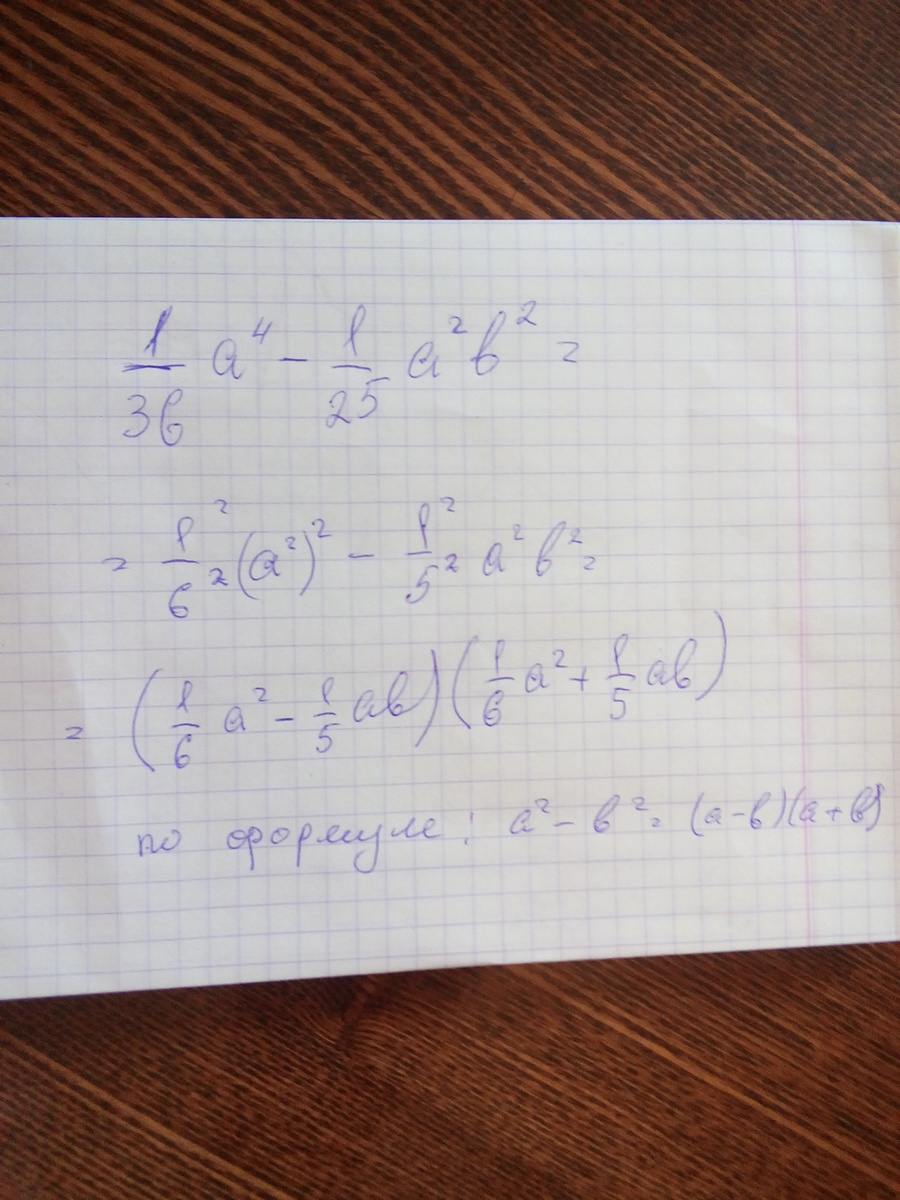 1/36 a⁴ - 1/25 a²b² =
= 1²/6² (a²)² - 1²/5² a² b² =
= (1/6 a² - 1/5 ab)(1/6 a² + 1/5 ab)
по формуле: a² - b² = (a-b)(a+b)